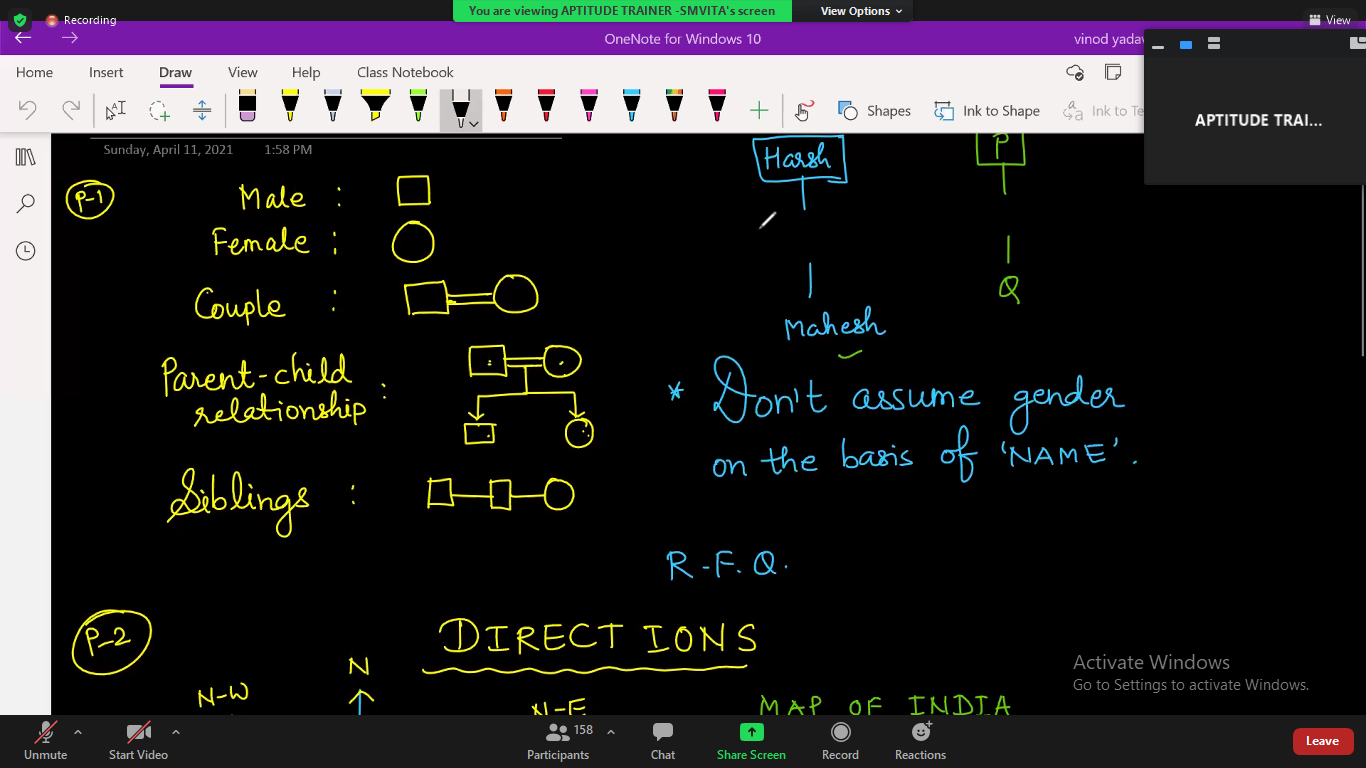 Recording
You are viewing APTITUDE TRAINER -SMVITA's screen
View Options
View
OneNote for Windows 10
vinod yadav
Home
Insert
Draw
View
Help
Class Notebook
Shapes
Ink to Shape
Ink to Te
APTITUDE TRAI...
Sunday, April 11, 2021
1:58 PM
P-1
Male :
Female :
Couple :
Parent-child
relationship :
Siblings :
Harsh
Mahesh
P
Q
* Don't assume gender
on the basis of 'NAME'.
R-F.Q.
P-2
DIRECTIONS
N
N-W
N-E
MAP OF INDIA
Activate Windows
Go to Settings to activate Windows.
Unmute
Start Video
158
Participants
Chat
Share Screen
Record
Reactions
Leave